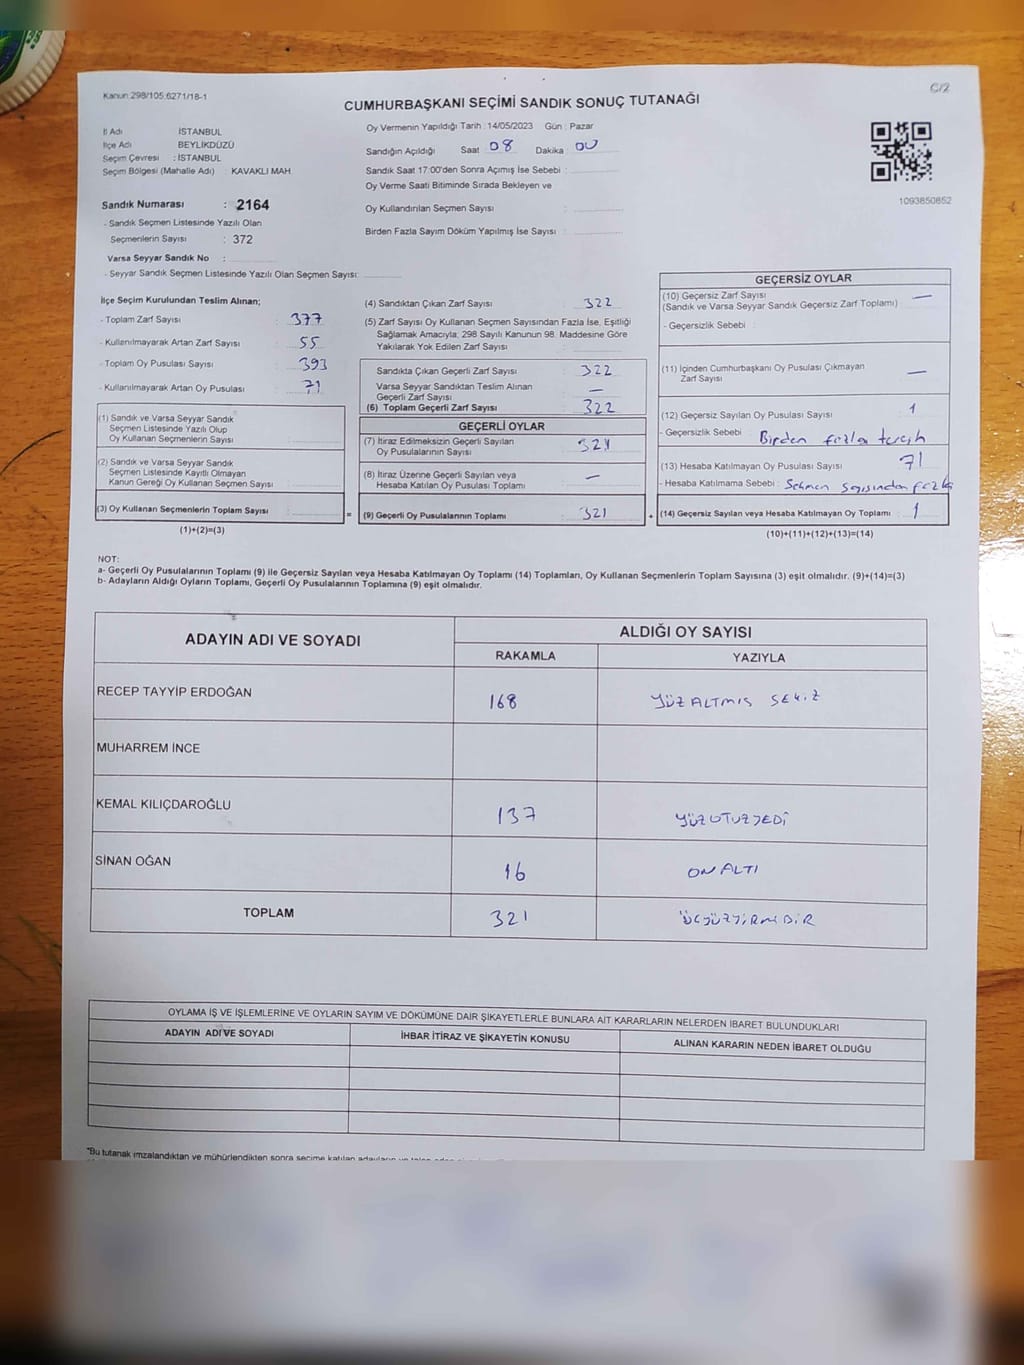 Kanun:298/105,6271/18-1
C/2
CUMHURBAŞKANI SEÇİMİ SANDIK SONUÇ TUTANAĞI
İl Adı İSTANBUL
İlçe Adı BEYLİKDÜZÜ
Seçim Çevresi : İSTANBUL
Seçim Bölgesi (Mahalle Adı) : KAVAKLI MAH
Oy Vermenin Yapıldığı Tarih : 14/05/2023 Gün : Pazar
Sandığın Açıldığı Saat 08 Dakika 00
Sandık Saat 17:00'den Sonra Açımış İse Sebebi :
Oy Verme Saati Bitiminde Sırada Bekleyen ve
Oy Kullandırılan Seçmen Sayısı :
Birden Fazla Sayım Döküm Yapılmış İse Sayısı :
1093850852
Sandık Numarası : 2164
- Sandık Seçmen Listesinde Yazılı Olan
Seçmenlerin Sayısı : 372
Varsa Seyyar Sandık No :
- Seyyar Sandık Seçmen Listesinde Yazılı Olan Seçmen Sayısı:
İlçe Seçim Kurulundan Teslim Alınan;
- Toplam Zarf Sayısı : 377
- Kullanılmayarak Artan Zarf Sayısı : 55
- Toplam Oy Pusulası Sayısı : 393
- Kullanılmayarak Artan Oy Pusulası : 71
(1) Sandık ve Varsa Seyyar Sandık
Seçmen Listesinde Yazılı Olup
Oy Kullanan Seçmenlerin Sayısı :
(2) Sandık ve Varsa Seyyar Sandık
Seçmen Listesinde Kayıtlı Olmayan
Kanun Gereği Oy Kullanan Seçmen Sayısı :
(3) Oy Kullanan Seçmenlerin Toplam Sayısı :
(1)+(2)=(3)
=
(4) Sandıktan Çıkan Zarf Sayısı : 322
(5) Zarf Sayısı Oy Kullanan Seçmen Sayısından Fazla İse, Eşitliği
Sağlamak Amacıyla; 298 Sayılı Kanunun 98. Maddesine Göre
Yakılarak Yok Edilen Zarf Sayısı :
Sandıkta Çıkan Geçerli Zarf Sayısı : 322
Varsa Seyyar Sandıktan Teslim Alınan
Geçerli Zarf Sayısı : —
(6) Toplam Geçerli Zarf Sayısı : 322
GEÇERLİ OYLAR
(7) İtiraz Edilmeksizin Geçerli Sayılan
Oy Pusulalarının Sayısı : 321
(8) İtiraz Üzerine Geçerli Sayılan veya
Hesaba Katılan Oy Pusulası Toplamı : —
(9) Geçerli Oy Pusulalarının Toplamı : 321
+
GEÇERSİZ OYLAR
(10) Geçersiz Zarf Sayısı : —
(Sandık ve Varsa Seyyar Sandık Geçersiz Zarf Toplamı)
- Geçersizlik Sebebi :
(11) İçinden Cumhurbaşkanı Oy Pusulası Çıkmayan
Zarf Sayısı : —
(12) Geçersiz Sayılan Oy Pusulası Sayısı : 1
- Geçersizlik Sebebi : Birden fazla tercih
(13) Hesaba Katılmayan Oy Pusulası Sayısı : 71
- Hesaba Katılmama Sebebi : Seçmen sayısından fazla
(14) Geçersiz Sayılan veya Hesaba Katılmayan Oy Toplamı : 1
(10)+(11)+(12)+(13)=(14)
NOT:
a- Geçerli Oy Pusulalarının Toplamı (9) ile Geçersiz Sayılan veya Hesaba Katılmayan Oy Toplamı (14) Toplamları, Oy Kullanan Seçmenlerin Toplam Sayısına (3) eşit olmalıdır. (9)+(14)=(3)
b- Adayların Aldığı Oyların Toplamı, Geçerli Oy Pusulalarının Toplamına (9) eşit olmalıdır.
ADAYIN ADI VE SOYADI
ALDIĞI OY SAYISI
RAKAMLA YAZIYLA
RECEP TAYYİP ERDOĞAN 168 YÜZ ALTMIŞ SEKİZ
MUHARREM İNCE
KEMAL KILIÇDAROĞLU 137 YÜZOTUZYEDİ
SİNAN OĞAN 16 ON ALTI
TOPLAM 321 ÜÇYÜZYİRMİ BİR
OYLAMA İŞ VE İŞLEMLERİNE VE OYLARIN SAYIM VE DÖKÜMÜNE DAİR ŞİKAYETLERLE BUNLARA AİT KARARLARIN NELERDEN İBARET BULUNDUKLARI
ADAYIN ADI VE SOYADI İHBAR İTİRAZ VE ŞİKAYETİN KONUSU ALINAN KARARIN NEDEN İBARET OLDUĞU
*Bu tutanak imzalandıktan ve mühürlendikten sonra seçime katılan adayların